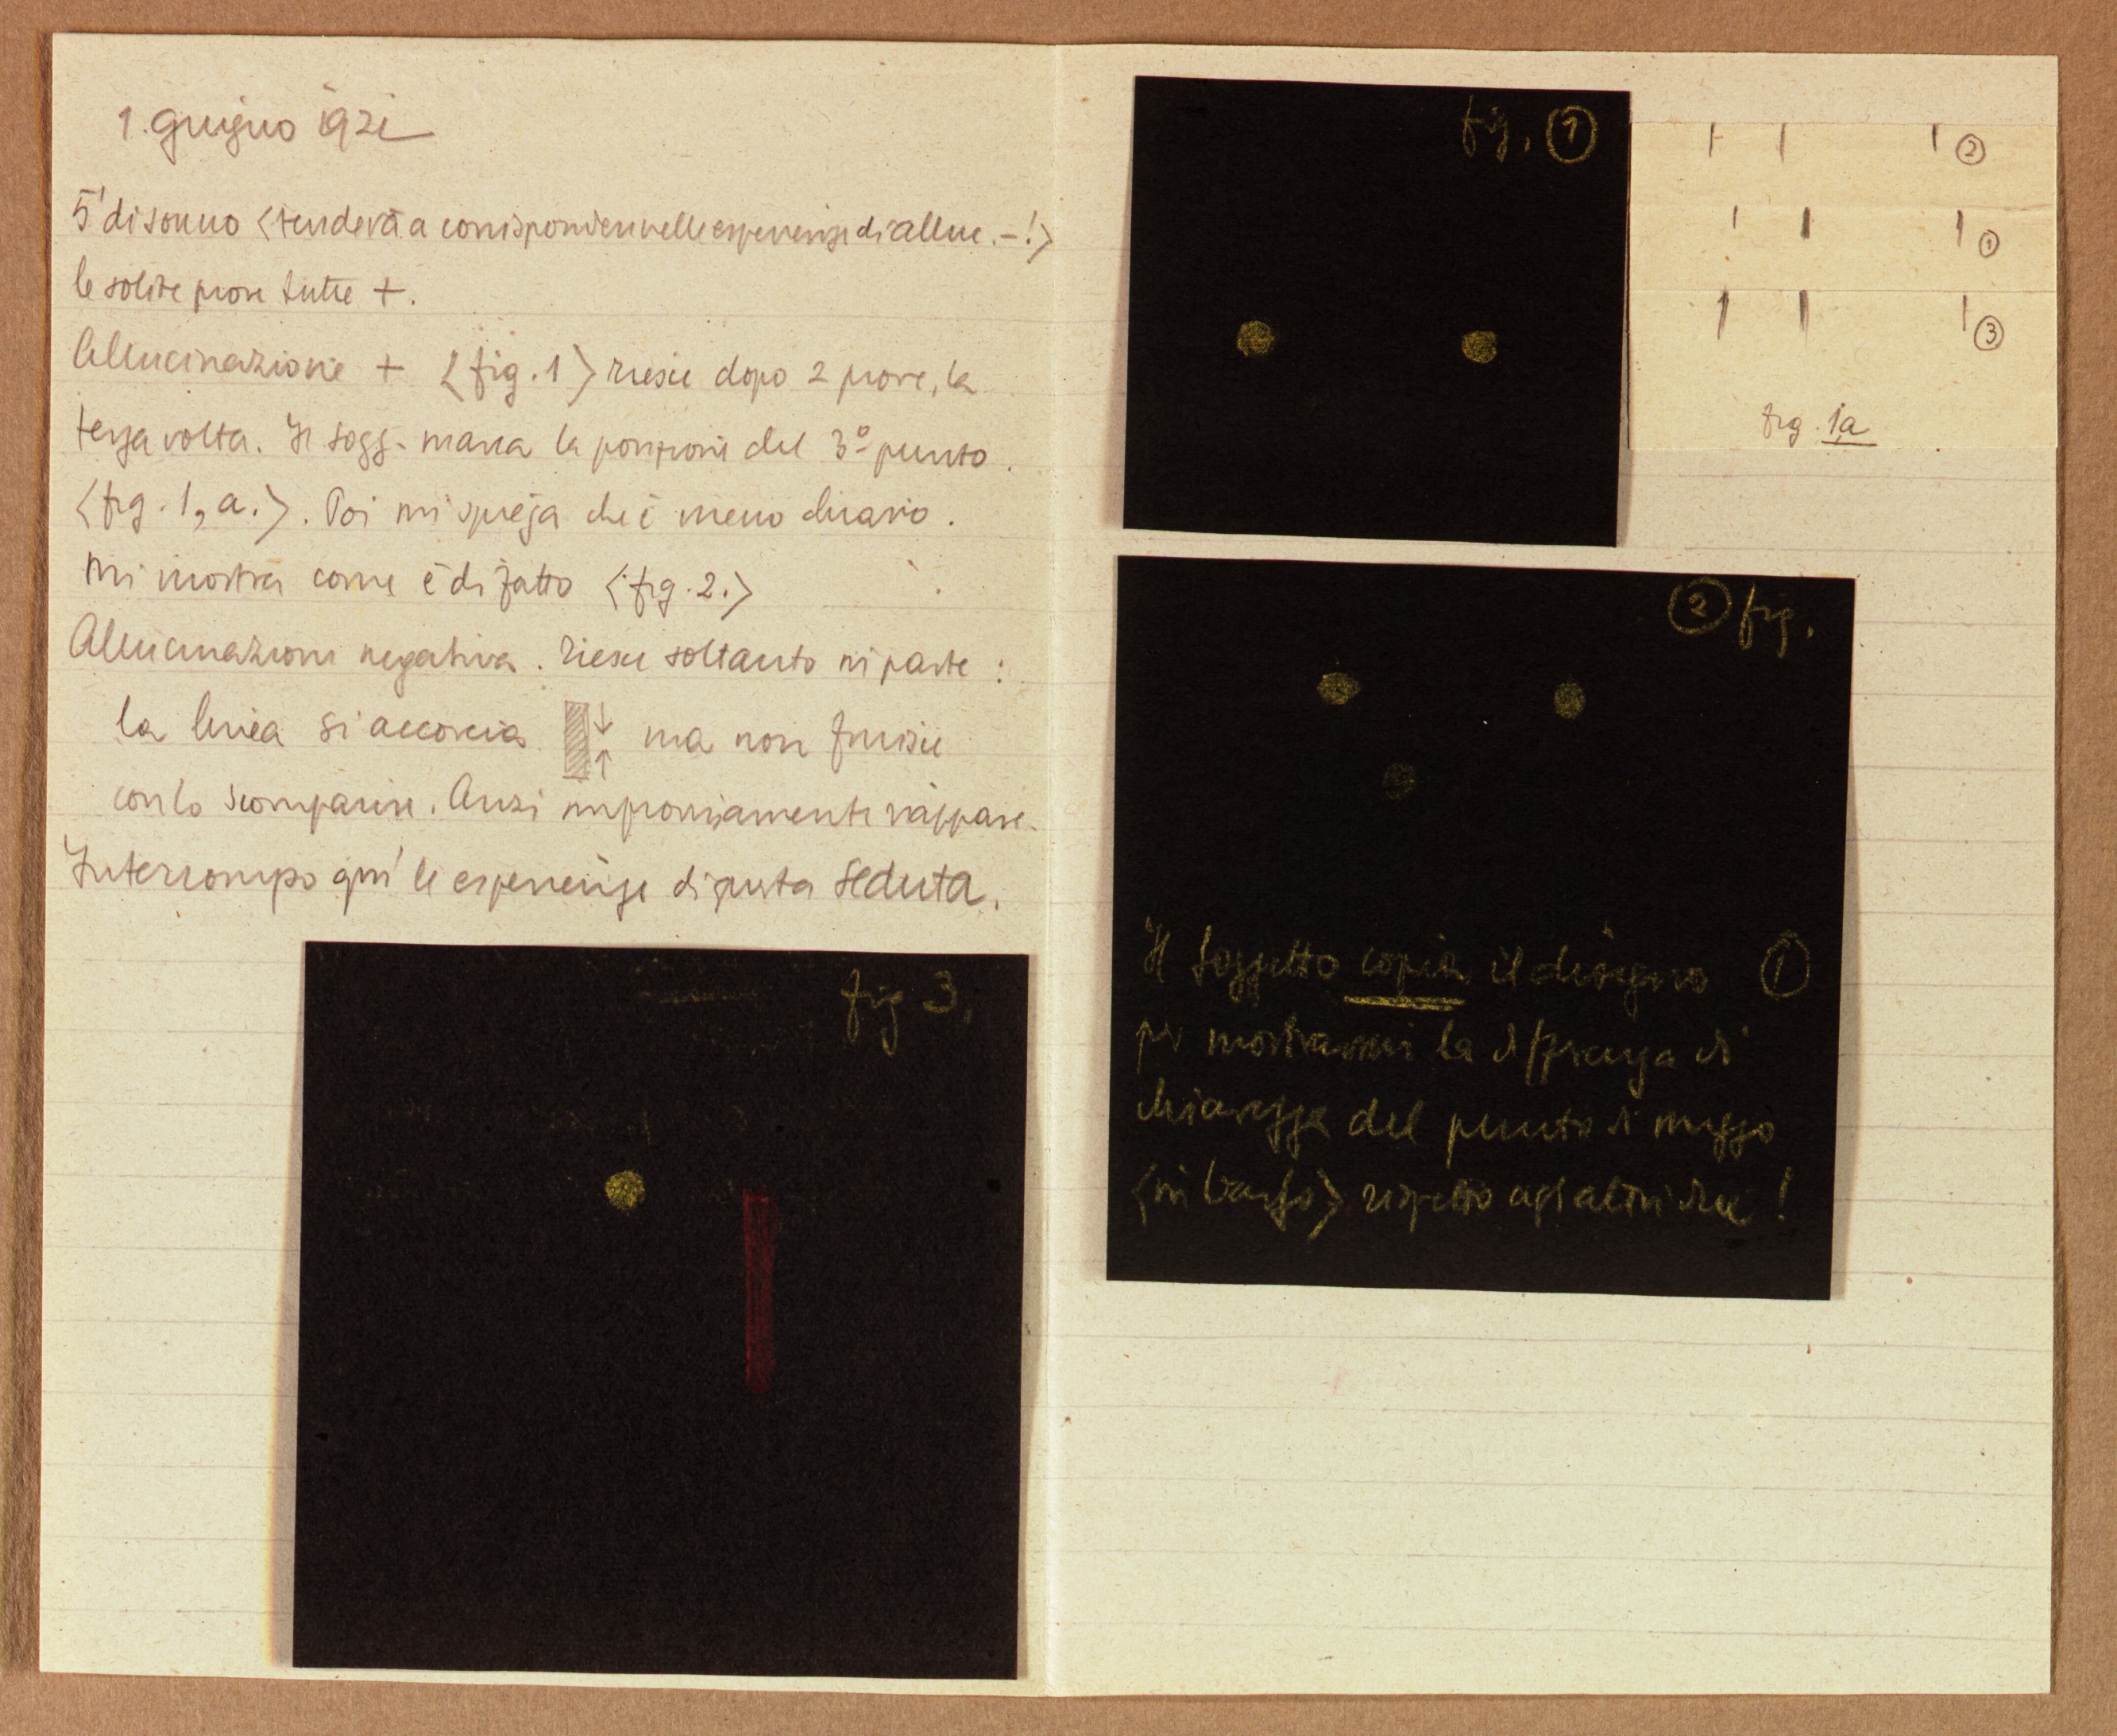 1. giugno 1921
5' di sonno <tendeva a corrispondere nelle esperienze di alluc. - !>
le solite prove tutte +.
Allucinazione + <fig. 1> riesce dopo 2 prove, la
terza volta. Il sogg. marca la posizione del 3º punto.
<fig. 1, a.>. Poi mi spiega che è meno chiaro.
Mi mostra come è di fatto <fig. 2.>
Allucinazione negativa. riesce soltanto in parte:
la linea si accorcia ↓ ↑ ma non finisce
con lo scomparire. Anzi improvvisamente riappare.
Interrompo qui le esperienze di questa seduta.
fig 3.
fig. ①
②
①
③
fig. 1a
② fig.
Il soggetto copia il disegno ①
per mostrarmi la differenza di
chiarezza del punto di mezzo
<in basso> rispetto agli altri due!